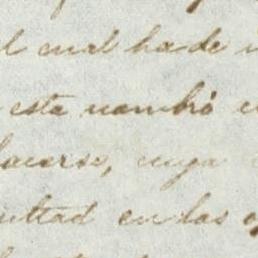 l cual ha de
esta nombró
hacerse, cuya
ultad en las